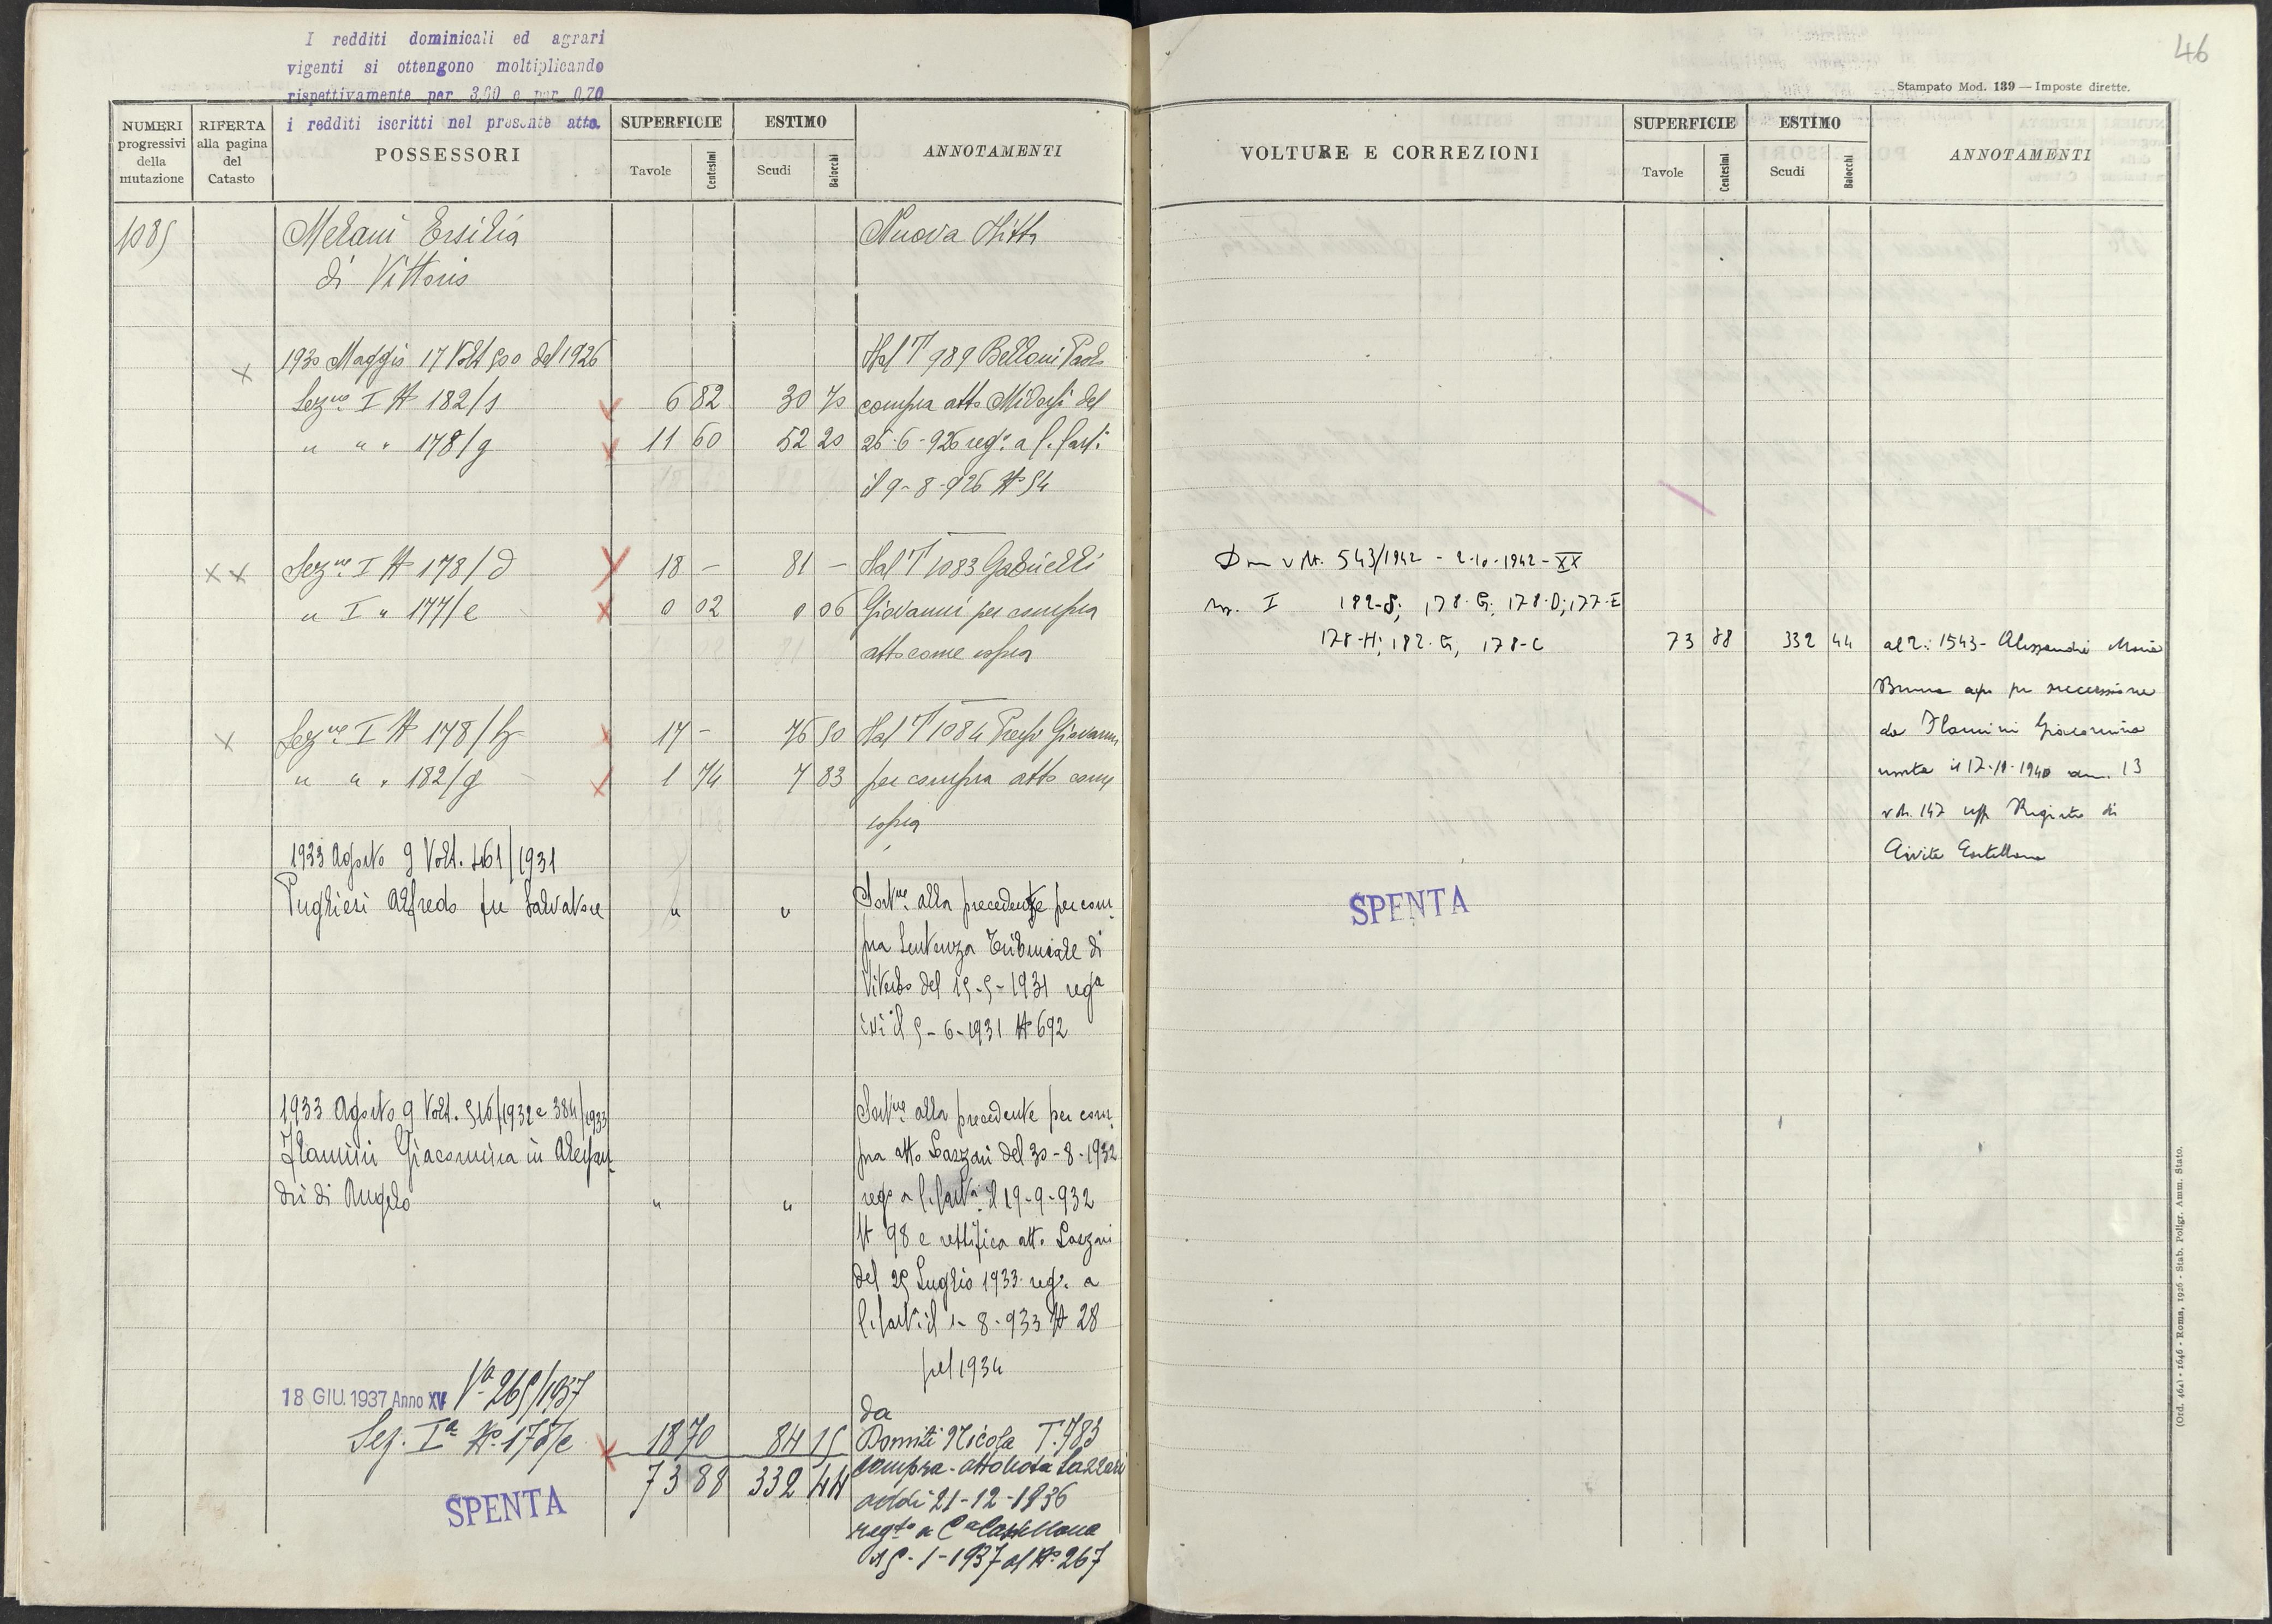 I redditi dominicali ed agrari
vigenti si ottengono moltiplicando
rispettivamente per 3,60 e per 0,70
i redditi iscritti nel presente atto.
NUMERI progressivi della mutazione
RIFERTA alla pagina del Catasto
POSSESSORI
SUPERFICIE
Tavole Centesimi
ESTIMO
Scudi Baiocchi
ANNOTAMENTI
1085 Melani Ersilia Nuova Ditta
di Vittorio
1930 Maggio 17 Volt 500 del 1926 Dal T 989 Belloni Paolo
Sezne I N 182/s 6 82 30 70 compra atto Midossi del
" " " 178/g 11 60 52 20 26-6-926 rego a C. Cast.
il 9-8-926 N 54
Sezne I N 178/d 18 - 81 - Dal T 1083 Gabrielli
" I " 177/e 0 02 0 06 Giovanni per compra
atto come sopra
Sezne I N 178/h 17 - 76 50 Dal T 1084 Giovanni
" " " 182/g 1 74 7 83 per compra atto come
sopra
1933 Agosto 9 Volt. 461/1931
Pugliesi Alfredo fu Salvatore " " alla precedente per com-
pra Sentenza Tribunale di
Viterbo del 15-5-1931 rega
ivi il 5-6-1931 N 692
1933 Agosto 9 Volt. 516/1932 e 384/1933 alla precedente per com-
Flamini Giacomina in Alessan- pra atto Lazzari del 30-8-1932
dri di Angelo " " rego a C. Casta il 19-9-932
N 98 e rettifica atto Lazzari
del 25 Luglio 1933 rego a
C. Cast. il 1-8-933 N 28
pel 1934
18 GIU. 1937 Anno XV Va 265/1937 da
Sez. Ia No 178/c 18 70 84 15 Domiti Nicola T. 783
73 88 332 44 compra - atto nota Lazzari
SPENTA addì 21-12-1936
regto a Ca Castellana
15-1-1937 al No 267
46
Stampato Mod. 139 — Imposte dirette.
VOLTURE E CORREZIONI
SUPERFICIE
Tavole Centesimi
ESTIMO
Scudi Baiocchi
ANNOTAMENTI
543/1942 - 2-10-1942-XX
I 182-S; 178-G; 178-D; 177-E
178-H; 182-G; 178-C 73 88 332 44 al 2: 1543 - Alessandri Maria
Bruna per successione
da Flamini Giacomina
morta il 17-11-1940 den. 13
vol. 147 uff Registro di
Civita Castellana
SPENTA
(Ord. 464) - 1646 - Roma, 1926 - Stab. Poligr. Amm. Stato.